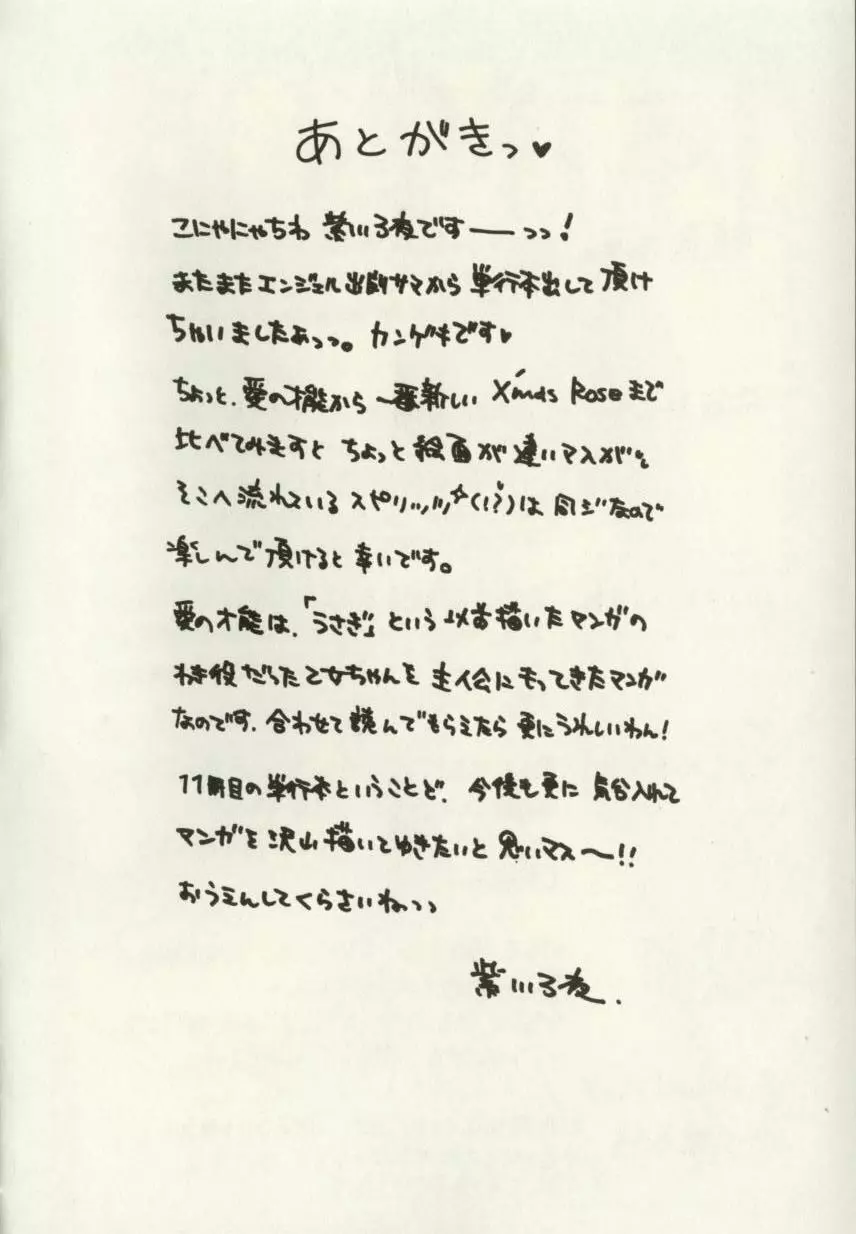 あとがきっ♥
こにゃにゃちわ 紫川弓夜ですーーっっ!
またまたエンジェル出版サマから 単行本出して 頂け
ちゃいましたぁっっ。 カンゲキです♥
ちょっと、愛の才能から 一番新しい X'mas Roseまで
比べてみますと ちょっと絵面が違いマスが。
そこへ流れている スピリッツ☆(!?)は 同ジなので
楽しんで頂けると 幸いです。
愛の才能は、「うさぎ」という 以前描いたマンガの
わき役だった乙女ちゃんを 主人公にもってきたマンガ
なのです。合わせて読んでもらえたら 更にうれしいわん!
11冊目の単行本ということで、 今後も更に 気合入れて
マンガを沢山描いてゆきたいと 思いマス〜!!
おうえんしてくらさいねっっ
紫川弓夜.